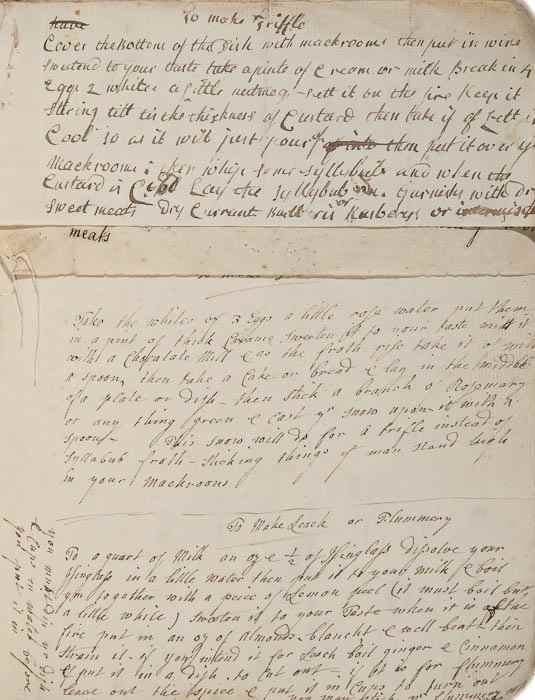 To make Triffle
Cover the Bottom of the Dish with mackrooms then put in wine
sweetend to your taste take a pinte of Cream or milk Break in 4
Eggs 2 whites a little nutmeg sett it on the fire Keep it
stiring till tis the thickness of Custard then take it of sett it
Cool so as it will just pour then put it over ye
Mackrooms: then whip some syllybub and when the
Custard is Cold Lay the Syllybub on. Garnish with dry
sweet meats dry Currant or Rasberys or
meats
Take the whites of 3 Eggs a little rose water put them
in a pint of thick Cream sweeten it to your taste mill it
with a Chocalate Mill & as the froth rise take it of with
a spoon, then take a Cake or bread & lay in the middle
of a plate or dish then stick a branch o' Rosmary
or any thing green & Cast yr snow upon it with a
spoon This snow will do for a trifle instead of
syllabub froth sticking things yt may stand high
in your Mackroons
To Make Leach or Flummery
To a quart of Milk an oz & 1/2 of Isinglass dissolve your
Isinglass in a little water then put it to your milk & boil
ym together with a peice of Lemon peel (it must boil but
a little while) sweeten it to your Taste when it is of the
fire put in an oz of Almonds blancht & well beat then
strain it if you intend it for Leach boil ginger & Cinnamon
& put it in a dish to Cut out if it is for flummery
leave out the spice & put it in Cups to turn out
you must
& Cups in water before
you put it in